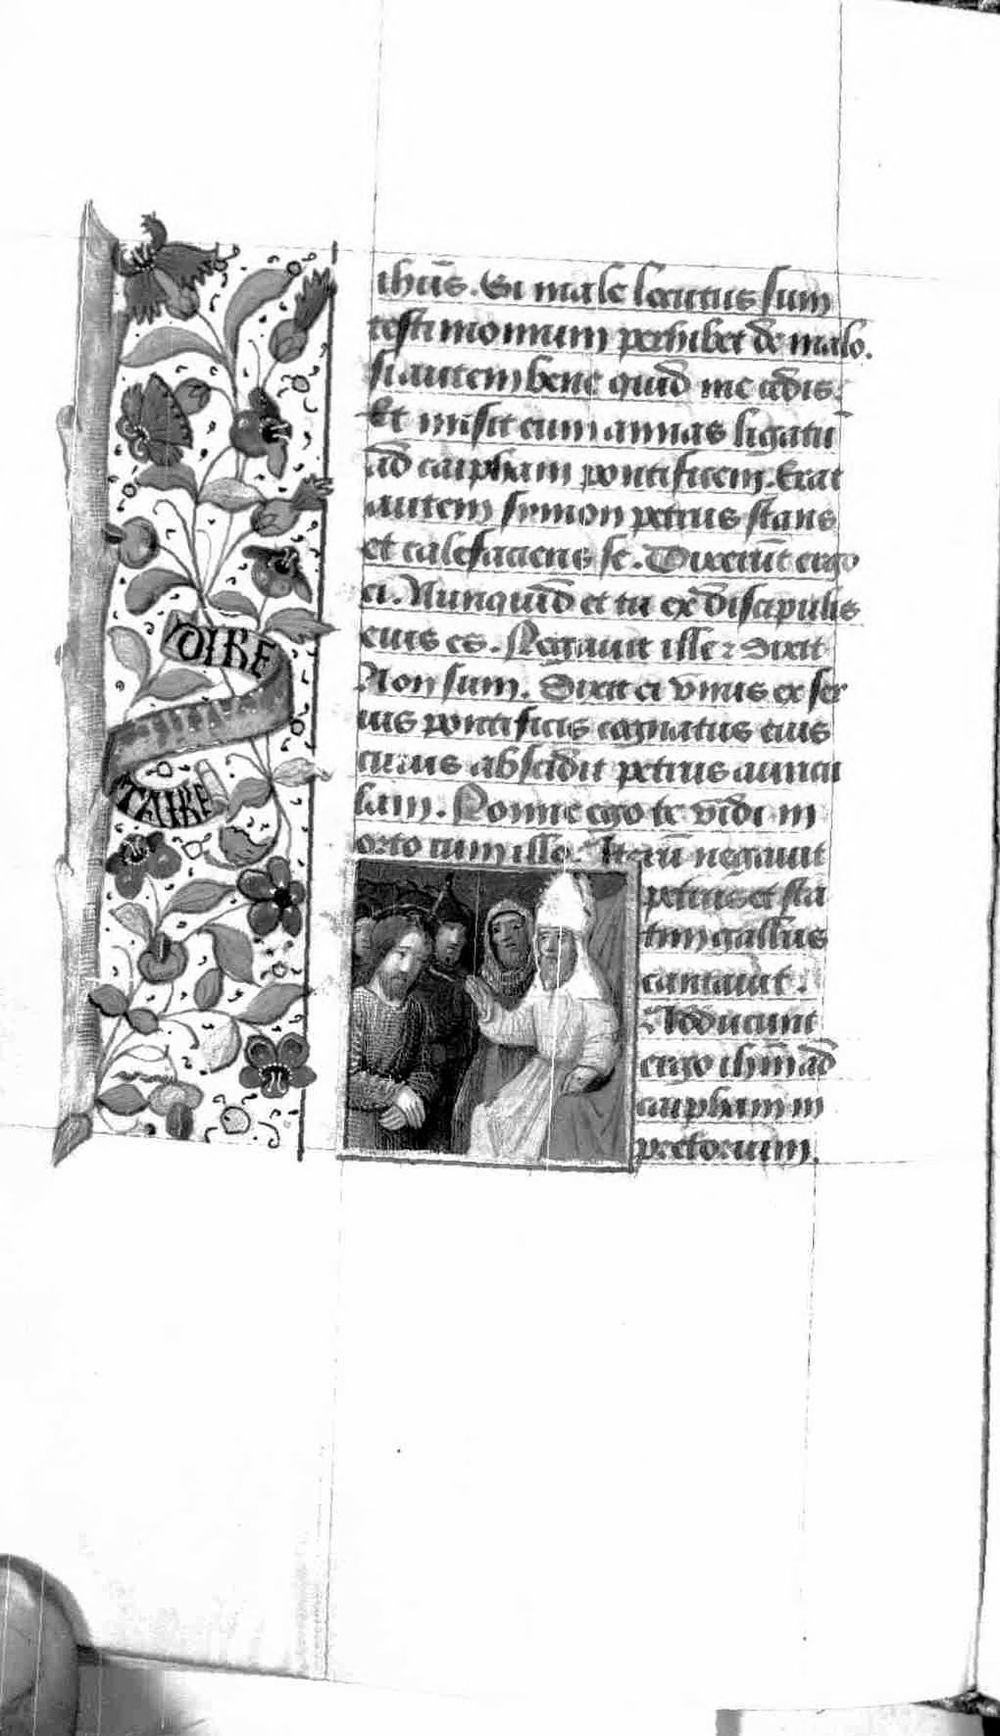 OIRE
TAIRE
ihūs. Si male locutus sum
testimonium perhibet de malo.
si autem bene quid me cedis:
Et misit eum annas ligatū
ad caipham pontificem. Erat
autem symon petrus stans
et calefaciens se. Dixerūt ergo
ei. Nunquid et tu ex discipulis
eius es. Negauit ille ⁊ dixit
Non sum. Dixit ei vnus ex ser
uis pontificis cognatus eius
cuius abscidit petrus auricu
lam. Nonne ego te vidi in
orto cum illo. Iterū negauit
petrus et sta
tim gallus
cantauit.
Adducunt
ergo ihm̄ ad
caipham in
pretorium.